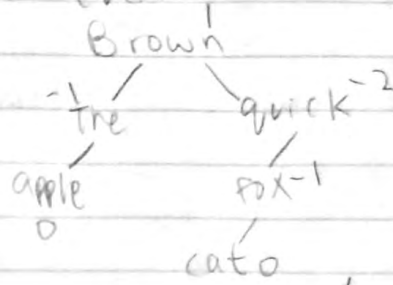 1
Brown
-1 -2
The quick
apple fox -1
0
cat 0